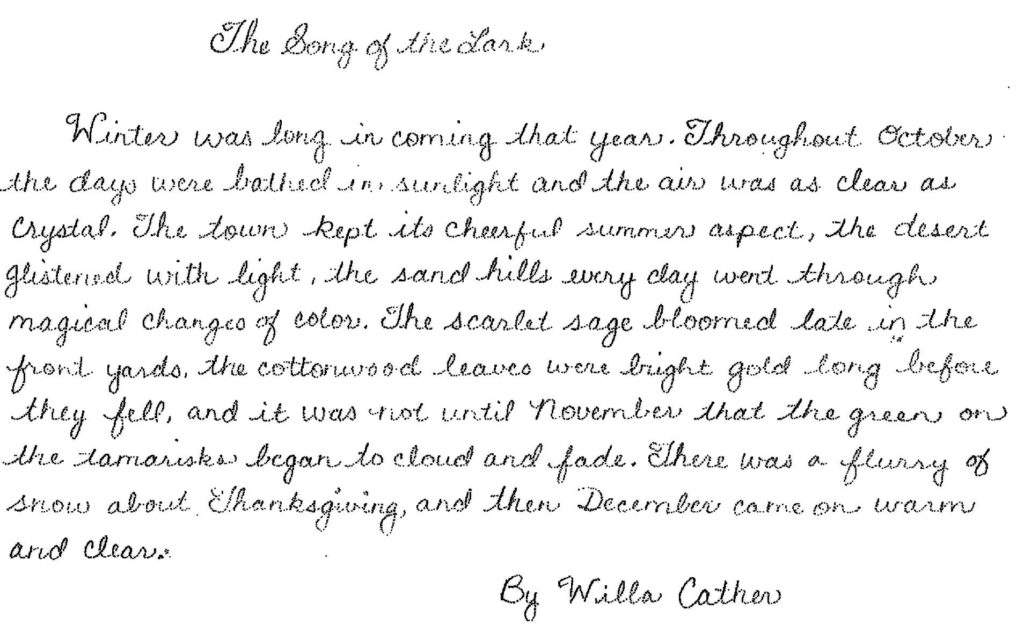 The Song of the Lark
Winter was long in coming that year. Throughout October
the days were bathed in sunlight and the air was as clear as
Crystal. The town kept its cheerful summer aspect, the desert
glistened with light, the sand hills every day went through
magical changes of color. The scarlet sage bloomed late in the
front yards, the cottonwood leaves were bright gold long before
they fell, and it was not until November that the green on
the tamarisks began to cloud and fade. There was a flurry of
snow about Thanksgiving, and then December came on warm
and clear.
By Willa Cather